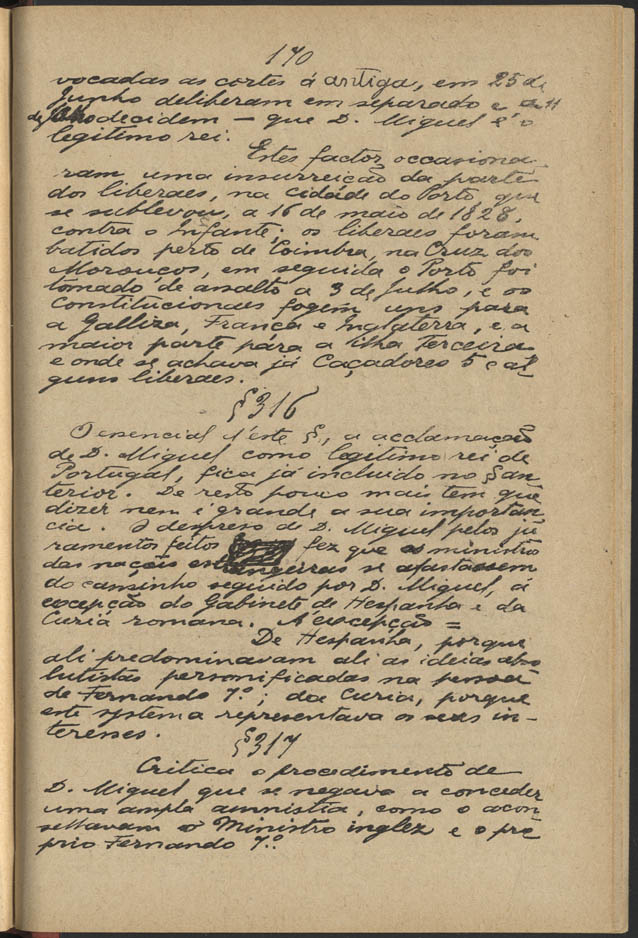 170
vocadas as cortes á antiga, em 25 de
Junho deliberam em separado e a 11
de decidem — que D. Miguel é o
legitimo rei.
Estes factos occasiona
ram uma insurreição da parte
dos liberaes, na cidade do Porto, que
se sublevou, a 16 de maio de 1828,
contra o Infante; os liberaes foram
batidos perto de Coimbra, na Cruz dos
Morouços, em seguida o Porto foi
tomado de assalto a 3 de Julho, e os
Constitucionaes fogem uns para
a Galliza, França e Inglaterra, e a
maior parte pára a ilha Terceira
e onde se achava já Caçadores 5 e al
guns liberaes.
§ 316
O esencial n'este §, a acclamação
de D. Miguel como legitimo rei de
Portugal, fica já incluido no § an
terior. De resto pouco mais tem que
dizer nem é grande a sua importan
cia. O despreso de D. Miguel pelos ju
ramentos feitos fez que os ministro
das nações estrangeiras se afastassem
do caminho seguido por D. Miguel, á
excepção do Gabinete de Hespanha e da
Curia romana. A excepção =
De Hespanha, porque
ali predominavam ali as ideias abso
lutistas personificadas na pessoa
de Fernando 7.º; da Curia, porque
este systema representava os seus in-
teresses.
§ 317
Critica o procedimento de
D. Miguel que se negava a conceder
uma ampla amnistia, como o acon
selhavam o Ministro inglez e o pro
prio Fernando 7.º